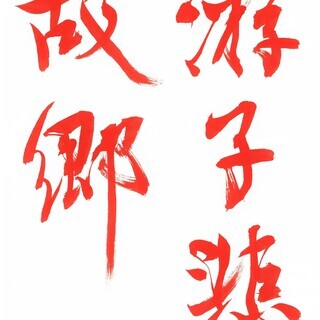 游子悲
故鄉